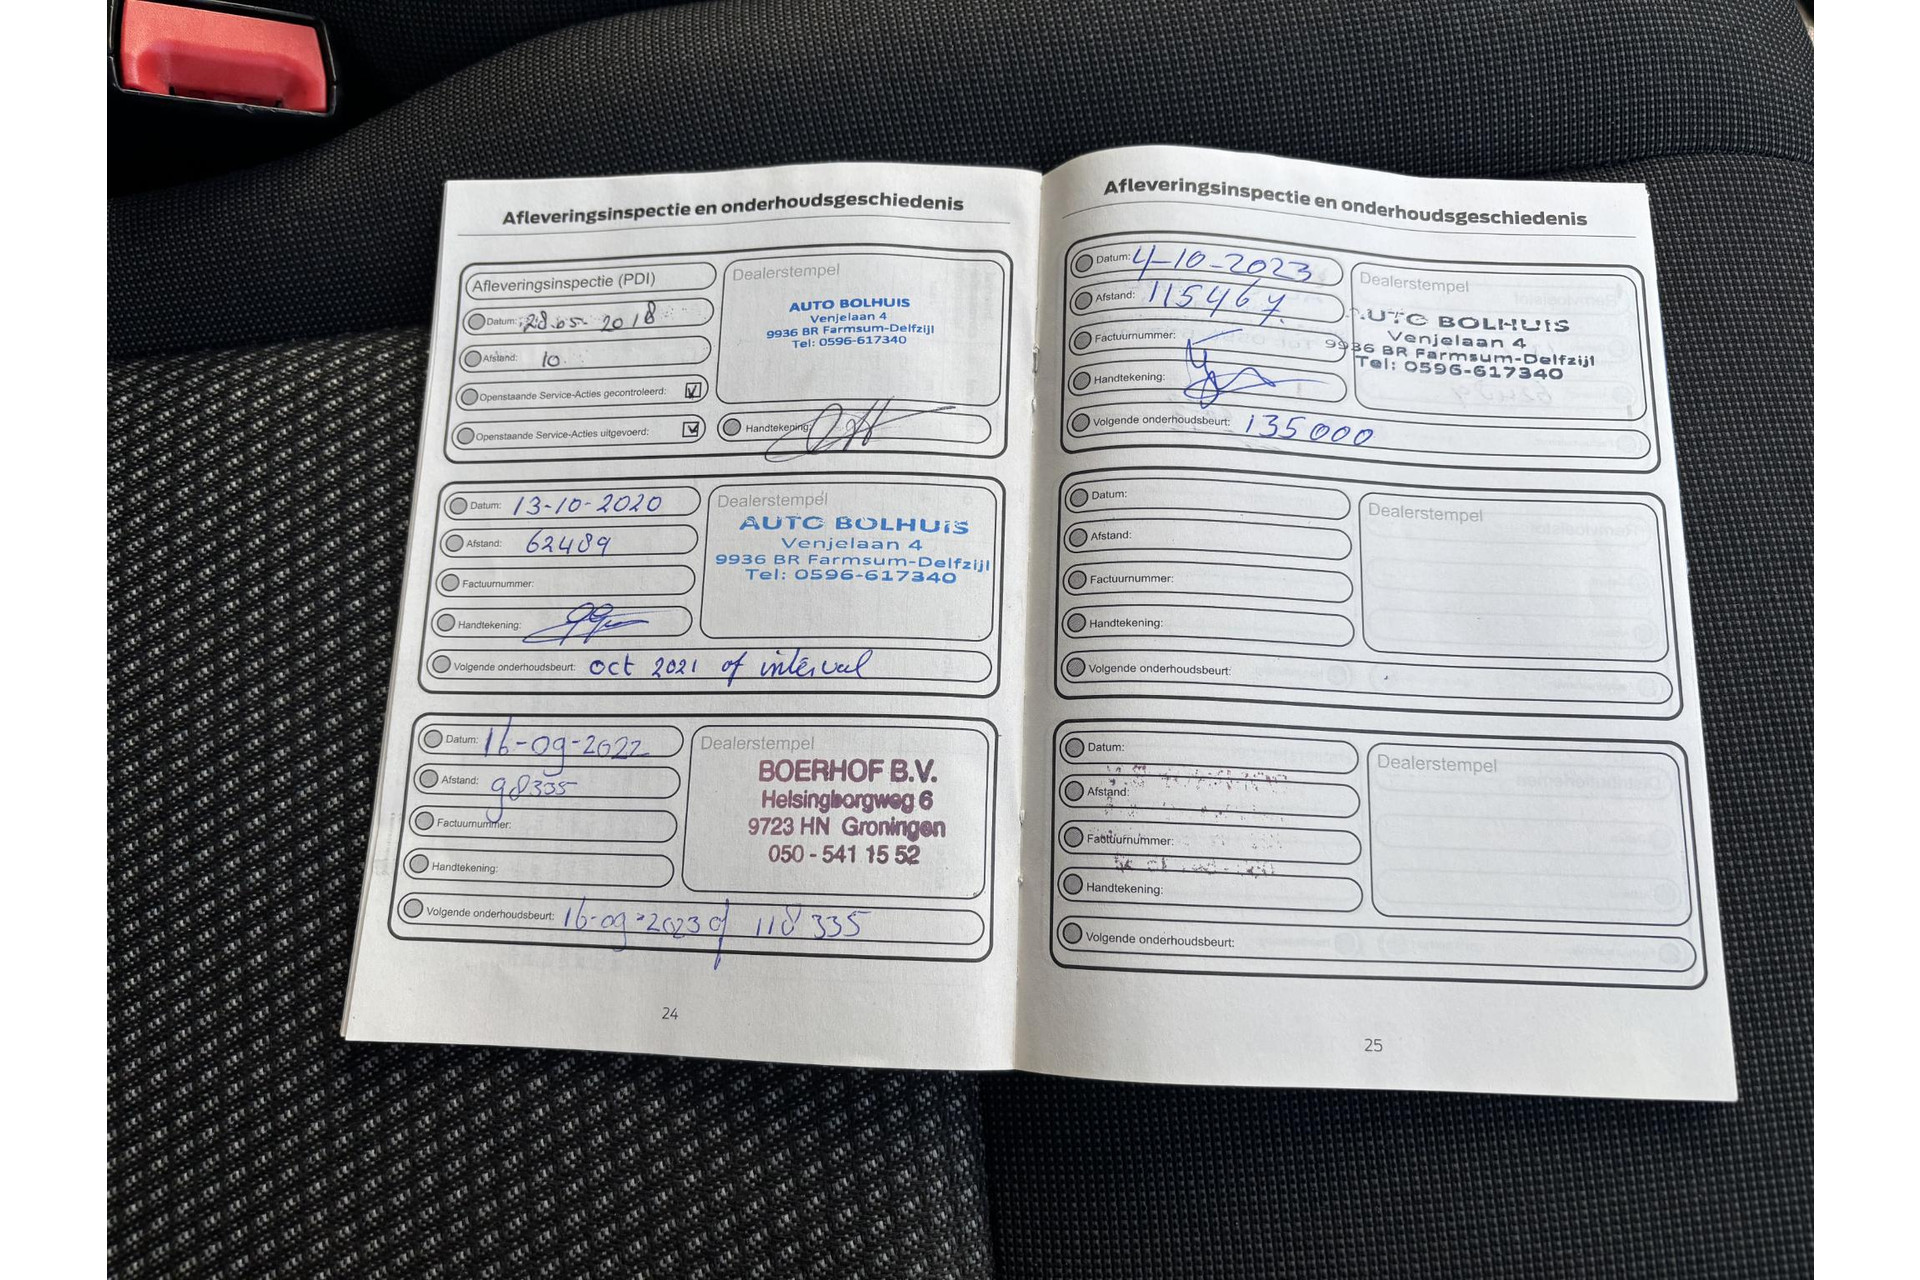 Afleveringsinspectie en onderhoudsgeschiedenis
Afleveringsinspectie (PDI)
Datum: 28.05-2018
Afstand: 10
Openstaande Service-Acties gecontroleerd:
Openstaande Service-Acties uitgevoerd:
Dealerstempel
AUTO BOLHUIS
Venjelaan 4
9936 BR Farmsum-Delfzijl
Tel: 0596-617340
Handtekening:
Datum: 13-10-2020
Afstand: 62489
Factuurnummer:
Handtekening:
Dealerstempel
AUTO BOLHUIS
Venjelaan 4
9936 BR Farmsum-Delfzijl
Tel: 0596-617340
Volgende onderhoudsbeurt: oct 2021 of interval
Datum: 16-09-2022
Afstand: 98335
Factuurnummer:
Handtekening:
Dealerstempel
BOERHOF B.V.
Helsingborgweg 6
9723 HN Groningen
050 - 541 15 52
Volgende onderhoudsbeurt: 16-09-2023 of 118335
24
Afleveringsinspectie en onderhoudsgeschiedenis
Datum: 4-10-2023
Afstand: 115467
Factuurnummer:
Handtekening:
Dealerstempel
AUTO BOLHUIS
Venjelaan 4
9936 BR Farmsum-Delfzijl
Tel: 0596-617340
Volgende onderhoudsbeurt: 135000
Datum:
Afstand:
Factuurnummer:
Handtekening:
Dealerstempel
Volgende onderhoudsbeurt:
Datum:
Afstand:
Factuurnummer:
Handtekening:
Dealerstempel
Volgende onderhoudsbeurt:
25